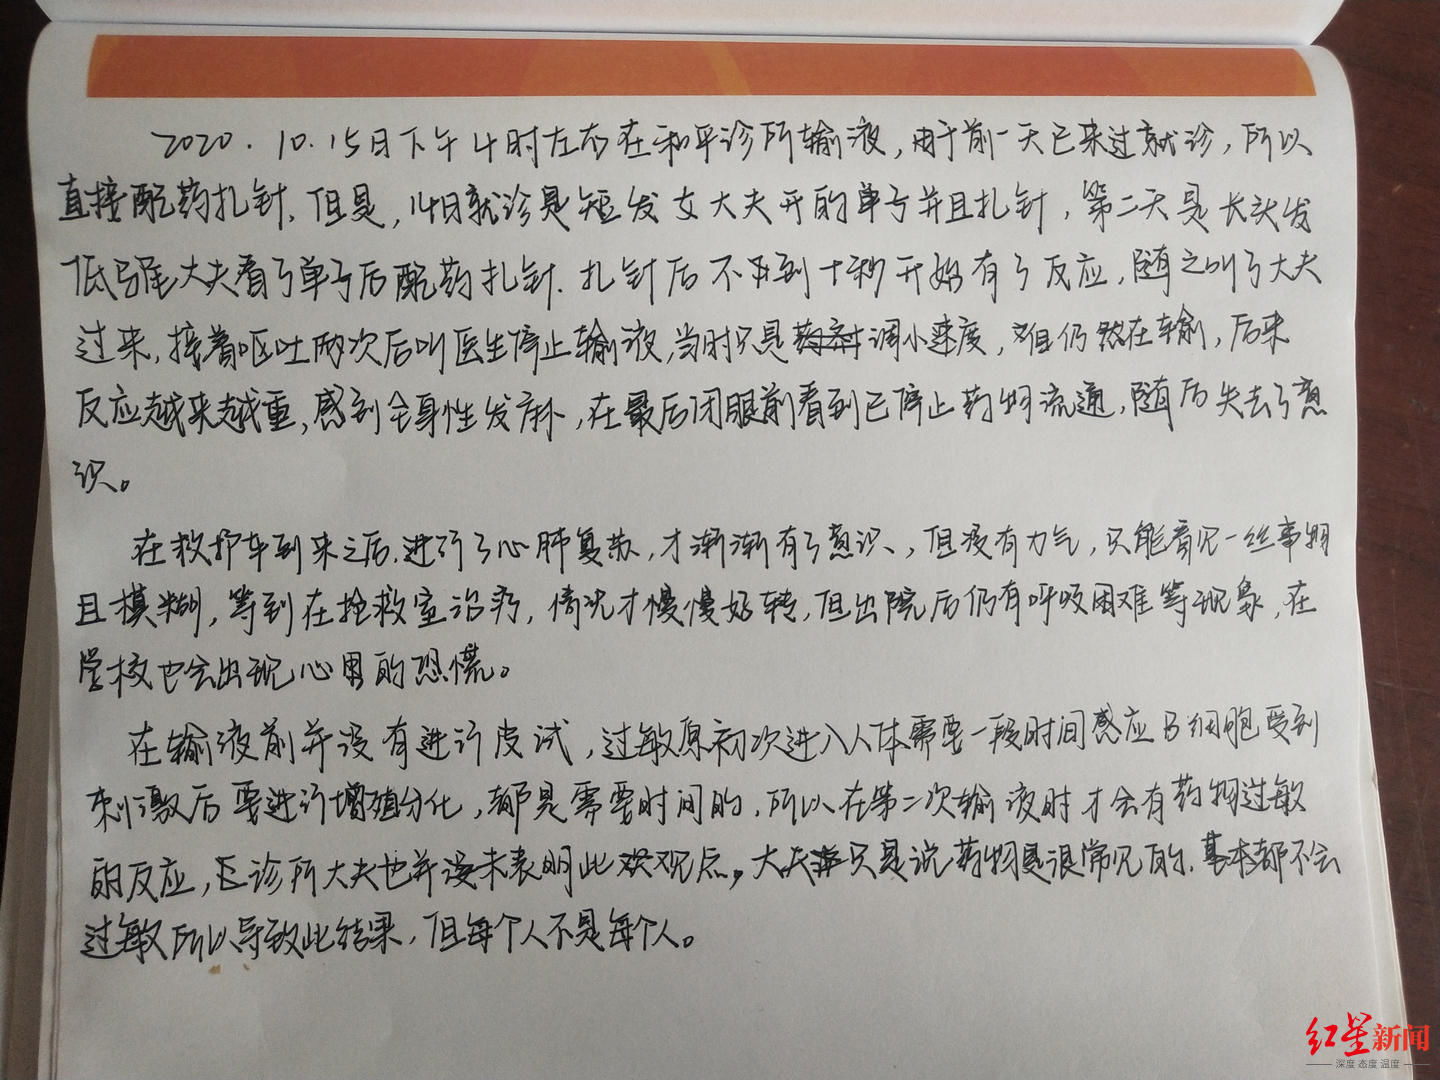 2020.10.15日下午4时左右在和平诊所输液,由于前一天已来过就诊,所以
直接配药扎针.但是,14日就诊是短发女大夫开的单子并且扎针,第二天是长头发
低马尾大夫看了单子后配药扎针.扎针后不到十秒开始有了反应,随之叫了大夫
过来,接着呕吐两次后叫医生停止输液,当时只是调小速度,但仍然在输,后来
反应越来越重,感到全身性发麻,在最后闭眼前看到已停止药物流通,随后失去了意
识。
在救护车到来之后.进行了心肺复苏,才渐渐有了意识、但没有力气,只能看见一丝事物
且模糊,等到在抢救室治疗,情况才慢慢好转,但出院后仍有呼吸困难等现象,在
学校也会出现心里的恐慌。
在输液前并没有进行皮试,过敏原初次进入人体需要一段时间感应B细胞受到
刺激后要进行增殖分化,都是需要时间的.所以在第二次输液时才会有药物过敏
的反应,诊所大夫也并未表明此观点。大夫只是说药物是很常见的.基本都不会
过敏所以导致此结果,但每个人不是每个人。
红星新闻
深度 态度 温度